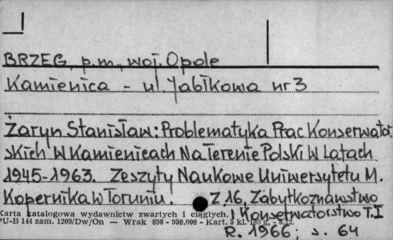 BRZEG, p.m., woj. Opole
Kamienica - ul. Jabłkowa nr 3
Żaryn Stanisław: Problematyka Prac Konserwator
skich w Kamienicach Na Terenie Polski w Latach
1945-1963. Zeszyty Naukowe Uniwersytetu M.
Kopernika w Toruniu. Z 16, Zabytkoznawstwo
i Konserwatorstwo T. I
Karta katalogowa wydawnictw zwartych i ciągłych.
PU-B 144 zam. 1209/Dw/On — Wrak 898 - 950.000 - Kart. 5 kl.
R. 1966; s. 64